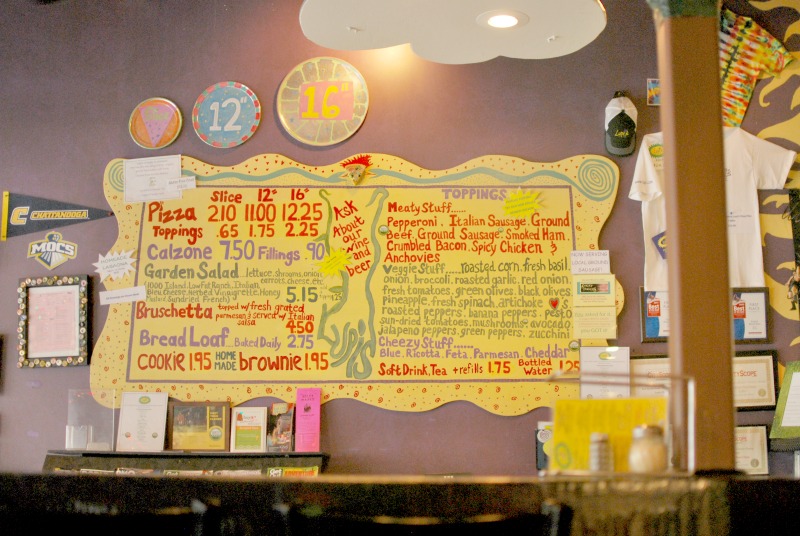 12"
16"
C CHATTANOOGA
MOCS
Slice 12" 16"
Pizza 2.10 11.00 12.25
Toppings .65 1.75 2.25
Calzone 7.50 Fillings .90
Garden Salad ...lettuce, shrooms, onion,
carrots, cheese,
1000 Island, LowFat Ranch, Italian,
Bleu Cheese, Vinaigrette, Honey
5.15
Bruschetta topped w/fresh grated
parmesan & served w/Italian
salsa 4.50
Bread Loaf .. Baked Daily 2.75
COOKIE 1.95 HOME MADE brownie 1.95
Ask
About
our
wine
and
beer
Lupi's
TOPPINGS
Meaty Stuff......
Pepperoni, Italian Sausage, Ground
Beef, Ground Sausage, Smoked Ham,
Crumbled Bacon, Spicy Chicken &
Anchovies
Veggie Stuff......roasted corn, fresh basil
onion, broccoli, roasted garlic, red onion,
fresh tomatoes, green olives, black olives,
pineapple, fresh spinach, artichoke
roasted peppers, banana peppers, pesto
sun-dried tomatoes, mushrooms, avocado,
jalapeno peppers, green peppers, zucchini
Cheezy Stuff......
Blue, Ricotta, Feta, Parmesan, Cheddar
Soft Drink, Tea + refills 1.75 Bottled Water 1.25